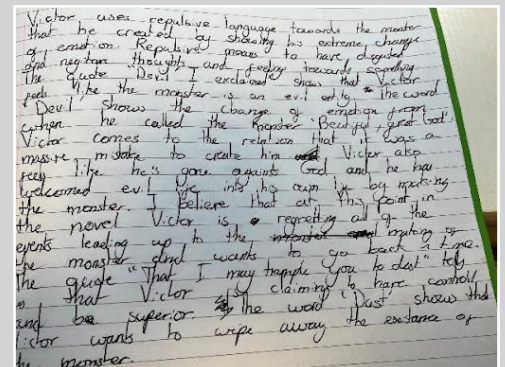 Victor uses repulsive language towards the monster
that he created by showing his extreme change
of emotion. Repulsive means to have disgusted
and negative thoughts and feelings towards something
The quote "Devil" I exclaimed shows that Victor
feels like the monster is an evil entity The word
"Devil" shows the change of emotion from
when he called the monster "Beautiful, great God!
Victor comes to the relation that it was a
massive mistake to create him Victor also
feels like he's gone against God and he has
welcomed evil into his own life by making
the monster. I believe that at this point in
the novel Victor is regretting all of the
events leading up to the making of
the monster and wants to go back in time.
The quote "That I may trample you to dust" tells
that Victor is claiming to have control
and be superior. The word "Dust" shows that
Victor wants to wipe away the existance of
the monster.